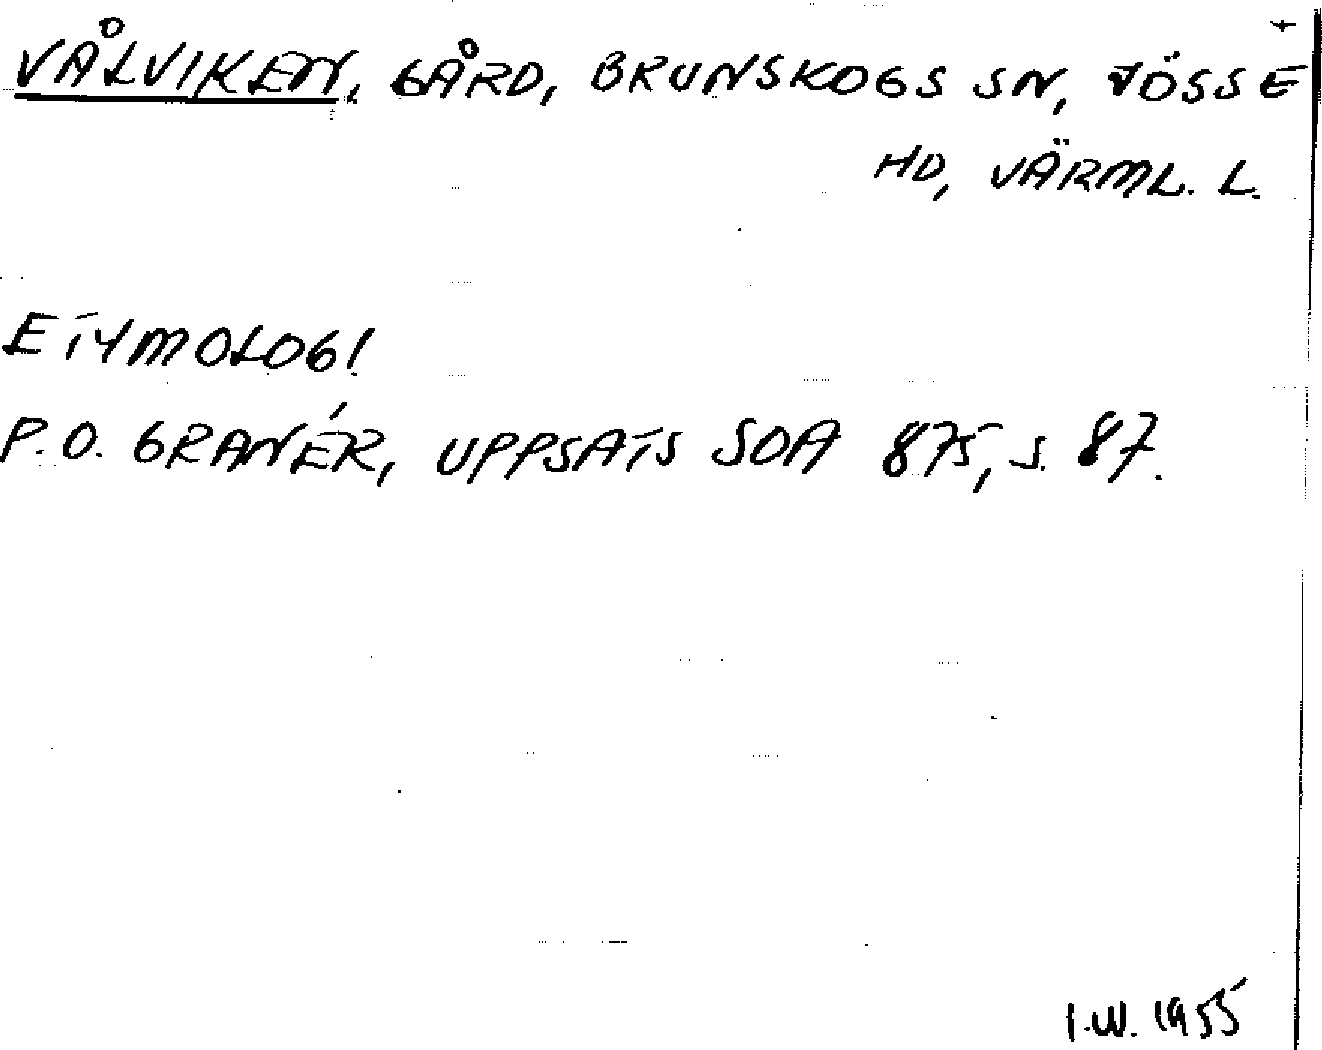 VÅLVIKEN, GÅRD, BRUNSKOGS SN, JÖSSE
HD, VÄRML. L.
ETYMOLOGI
P.O. GRANÉR, UPPSATS SOA 875, S. 87.
I.W. 1955